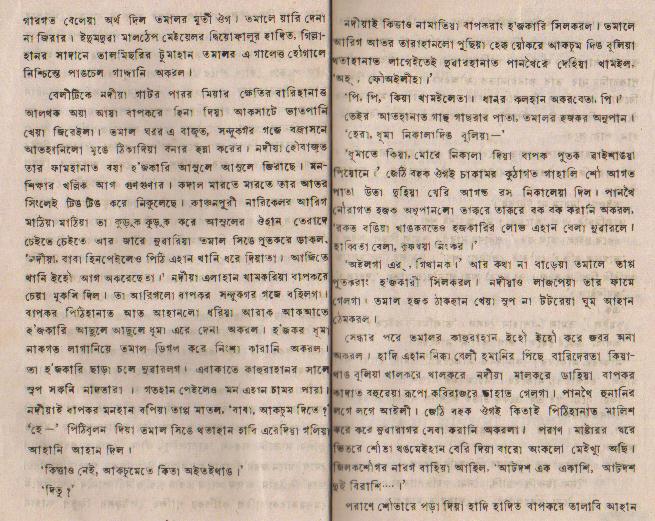 গারগত বেলেয়া অর্থ দিল তমালর মূর্তী ঔগ। তমালে য়ারি দেনা
না জিরার। ইতুমতুমা মালঠেপ মেইয়েলর দ্বিয়োফালুর হাদিত, গিল্লা-
হানর সাদানে তালমিছরির টুমাহান তমালর এ গালেত্ত হৌগালে
নিশ্চিন্তে পাতচেল গাদ্দানি অকরল।
বেলীটিকে নদীয়া গাটর পারর মিয়ার ক্ষেতির বারিহানাত্ত
আলথক অয়া আয়া বাপকরে হিনা দিয়া আকসাটে ভাতপানি
খেয়া জিরেইলা। তমাল ঘরর এ বাজুত, সন্দুকগর গজে বজাসনে
আতহানিলো মুঙে ঠিকাদিয়া বনার হন্না করের। নদীয়া হৌবাজুত
তার ফামহানাত বয়া হ'জকারি আঙ্গুলে আঙ্গুলে জিরাছে। মন-
শিক্ষার খল্লিক আগ গুণগুনার। কদাল মারতে মারতে তার আতর
সিংলেই টিঙ টিঙ করে নিকুলেছে। কাঞ্চনপুরী নারিকেলর আরিগ
মাঠিয়া মাঠিয়া তা কুড়ুক কুড়ুক করে আঙ্গুলের ঔহান তেরাদে
চেইতে চেইতে আর জারে ভুবারিয়া তমাল সিঙে পুতকরে ডাকল,
'নদীয়া, বাবা হিনপেইলেও পিঠি এহান থানি ধরে দিয়াতা। আজিতে
থানি ইহৌ আগ অকরেছেতা।' নদীয়া এলাহান থামকরিয়া বাপকরে
চেয়া মুকসি দিল। তা আরিগলো বাপকর সন্দুকগর গজে বহিলগা।
বাপকর পিঠিহানাত আত আহানলো ধরিয়া আরাক আকআতে
হ'জকারি আঙুলে আঙুলে ধূমা এরে দেনা অকরল। হ'জকর ধূমা
নাকগত লাগানিয়ে তমাল ডিগল করে নিংশা কারানি অকরল।
তা হ'জকারি ছাড়া চলে ভুরারলগ। এবাকাতে কাহুরাহানর সালে
সুপ সকনি নাদতারা। গতহান পেইলেও মন এহান চামর পারা।
নদীয়াই বাপকর মনহান বপিয়া তাপ্প মাতল, 'বাবা, আকচুম দিতে?'
'হে—' পিঠিবুলন দিয়া তমাল সিঙে থতাহান হাবি এরেদিয়া গলিয়া
আহানি আহান দিল।
'কিত্তাও নেই, আকচুমেতে কিতা অইতইথাঙ।'
'দিতু?'
নদীয়াই কিত্তাও নামাতিয়া বাপকরাং হ'জকারি সিলকরল। তমালে
আরিগ আতর তারাহানলো পুছিয়া হেরু য়ৌকরে আকচুম দিঙ বুলিয়া
থতাহানাত লাগেইতেই ভুবারহানাত পানথৈরে দেহিয়া থামইল,
'অহ্, ফৌঅইলীহা।'
'পি, পি, কিয়া থামইলেতা। ধানর কলহান অকরবেতা, পি।'
তেইর আতহানাত গাছু গাছরার পাতা, তমালর হজকর অনুপান।
'হেরা, ধূমা নিকালাদিঙ বুলিয়া—'
'ধূমাতে কিয়া, মোরে নিকালা দিয়া বাপক পুতক রাইশাঙয়া
পিয়োনে।' জেঠি বহক ঔগই চাকামর কুঠাগত গাহালি শৌ আগত
পাতা উতা ছুহিয়া খেরি আগত্ত রস নিকালেয়া দিল। পানথৈ
নৌরাগত হজক অনুপানলো তাকুরে তাকুরে বক বক করানি অকরল,
'রকত বঙিয়া খাঙকরতেও হজকারির লোভ এহান বেলা ভুরারলে।
হাব্বিতা বেলা, কুরুওয়া নিংকর।'
'অইলগা এর, গিথানক।' আর কথা না বাড়েয়া তমালে তাপ্প
পুতকরাং হ'জকারী সিলকরল। নদীয়াও লাজপেয়া তার ফামে
গেলগা। তমাল হজক ঠাকহান খেয়া সুপ না টটরেয়া ঘুম আহান
ঠেমকরল।
সেন্ধার পরে তমালর কাহুরাহান ইহৌ ইহৌ করে জবর অনা
অকরল। হাদি এহান নিরু বেলী হমানির পিছে বারিদেরতা কিয়া-
থাঙ বুলিয়া খালকরে থালকরে নদীয়া মালকরে ডাহিয়া বাপকর
কাদাত বহুরেয়া রূপো কবিরাজরে ডাহাত গেলগা। পানথৈ হুনানির
লগে লগে আইলী। জেঠি বহক ঔগই কিতাই পিঠিহানাত মালিশ
করে করে ভুরারাগর সেবা করানি অকরলা। পরাণ মাষ্টরর ঘরে
ভিতরে শৌতা থঙমেইহান বেরি দিয়া বারো আকলো মেইথ্যু অছি।
জিলকশৌগর নারগ বাহিয়া আহিল, 'আটদশ এক একাশি, আটদশ
দুই বিরাশি····।'
পরাণে শৌতারে পড়া দিয়া হাদি হাদিত বাপকরে তালাবি আহান